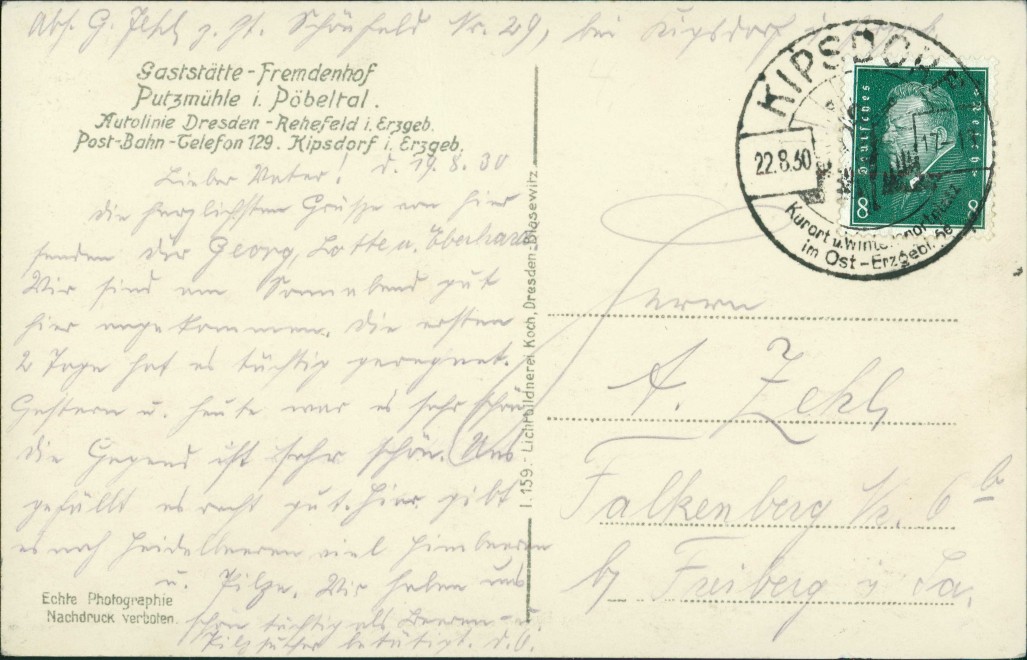 Abs. G. Zehl z. Zt. Schönfeld Nr. 29, bei Kipsdorf
Gaststätte - Fremdenhof
Putzmühle i. Pöbeltal.
Autolinie Dresden - Rehefeld i. Erzgeb.
Post-Bahn-Telefon 129. Kipsdorf i. Erzgeb.
d. 19.8.30
Lieber Vater!
Die herzlichsten Grüße von hier
senden dir Georg, Lotte u. Eberhard
Wir sind am Sonnabend gut
hier angekommen. Die ersten
2 Tage hat es tüchtig geregnet.
Gestern u. heute war es sehr schön
Die Gegend ist sehr schön. Uns
gefällt es recht gut. Hier gibt
es noch Heidelbeeren viel Himbeeren
u. Pilze. Wir haben uns
schon tüchtig als Beeren- u.
Pilzsucher betätigt. d. O.
Echte Photographie
Nachdruck verboten.
I. 159. - Lichtbildnerei Koch, Dresden-Blasewitz
KIPSDORF
22.8.30
Kurort u. Wintersportplatz
im Ost-Erzgebirge
Deutsches Reich
8 8
Herrn
A. Zehl
Falkenberg Nr. 6 b
by Freiberg i. Sa.